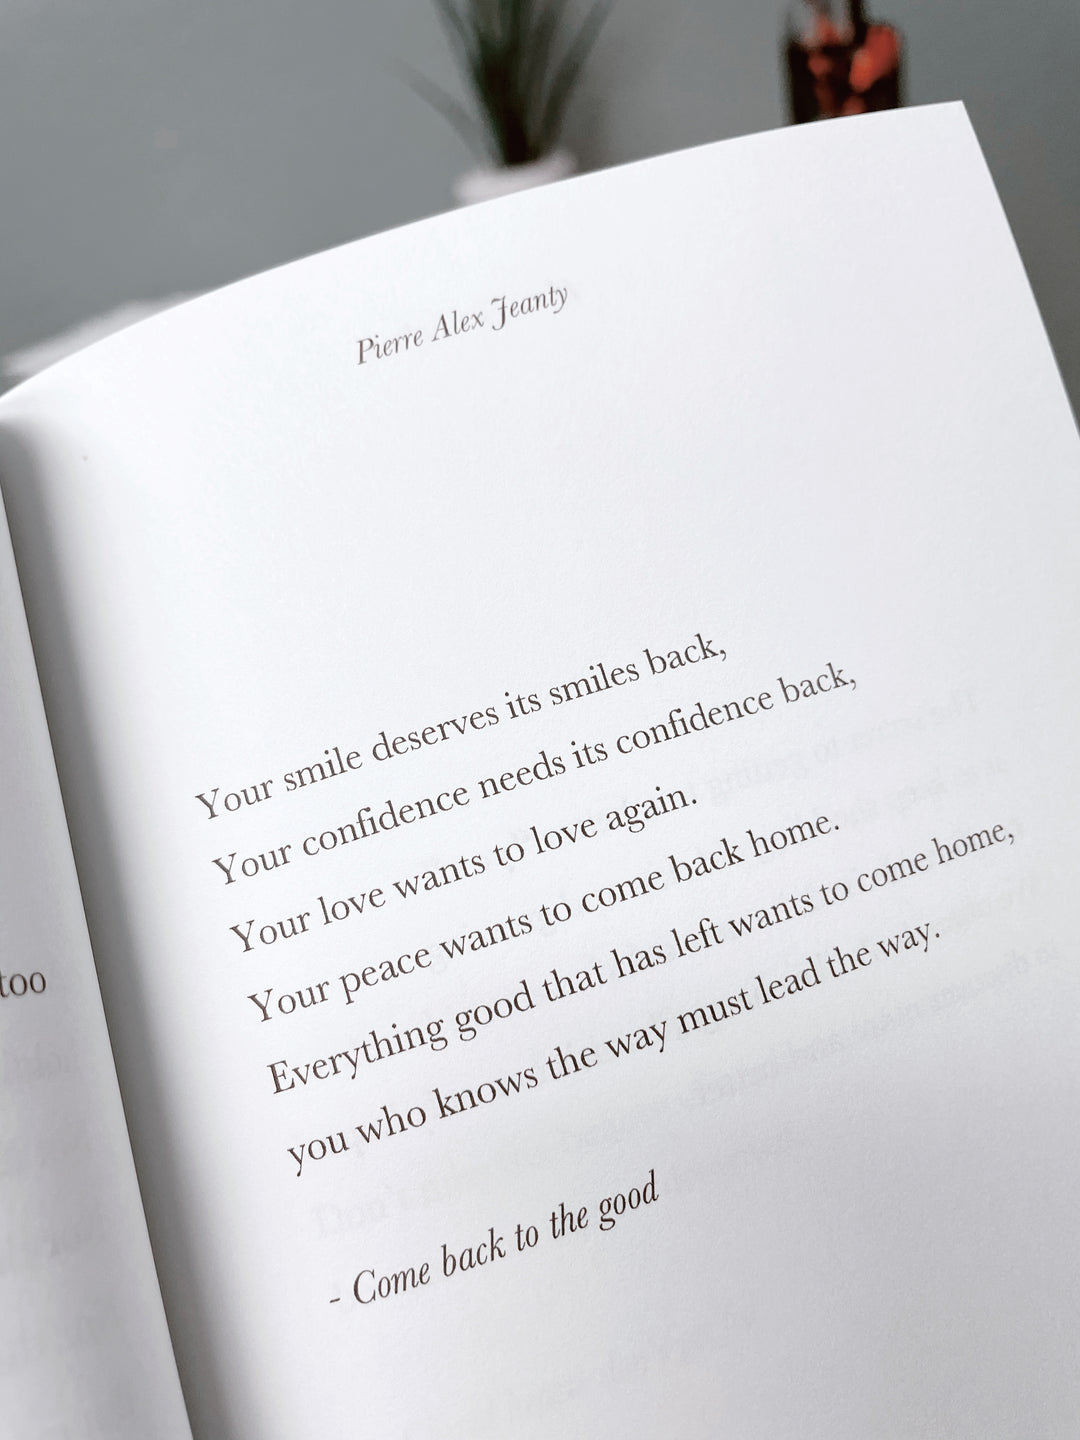 Pierre Alex Jeanty
Your smile deserves its smiles back,
Your confidence needs its confidence back,
Your love wants to love again.
Your peace wants to come back home.
Everything good that has left wants to come home,
you who knows the way must lead the way.
- Come back to the good
too